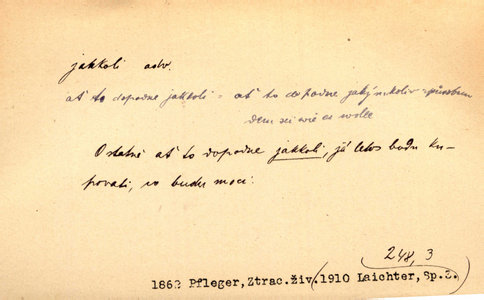 jakkoli adv.
ať to dopadne jakkoli = ať to dopadne jakýmkoliv způsobem
dem sei wie es wolle
Ostatně ať to dopadne jakkoli, já letos budu ku-
povati, co budu moci.
248, 3
1862 Pfleger, Ztrac.živ.(1910 Laichter, Sp.3.)